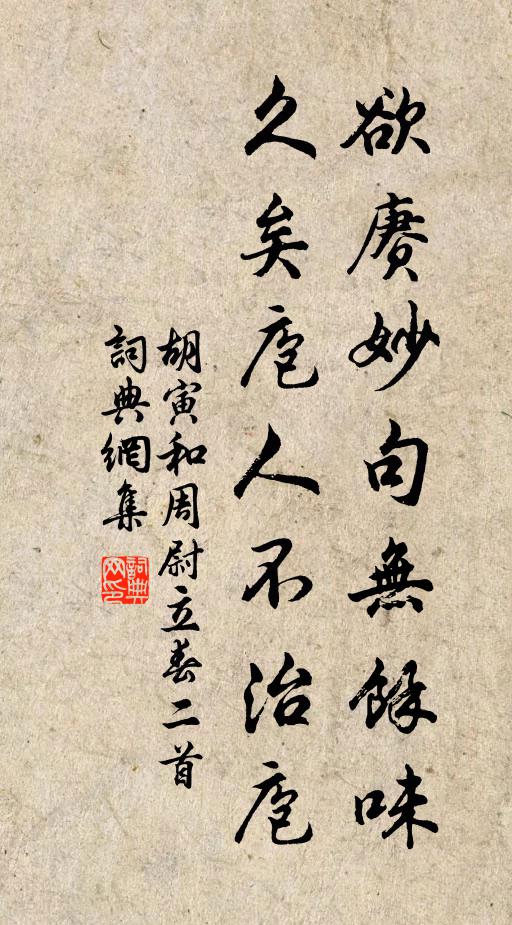 欲賡妙句無餘味
久矣庖人不治庖
胡寅和周尉立春二首
詞典網集
詞典網印